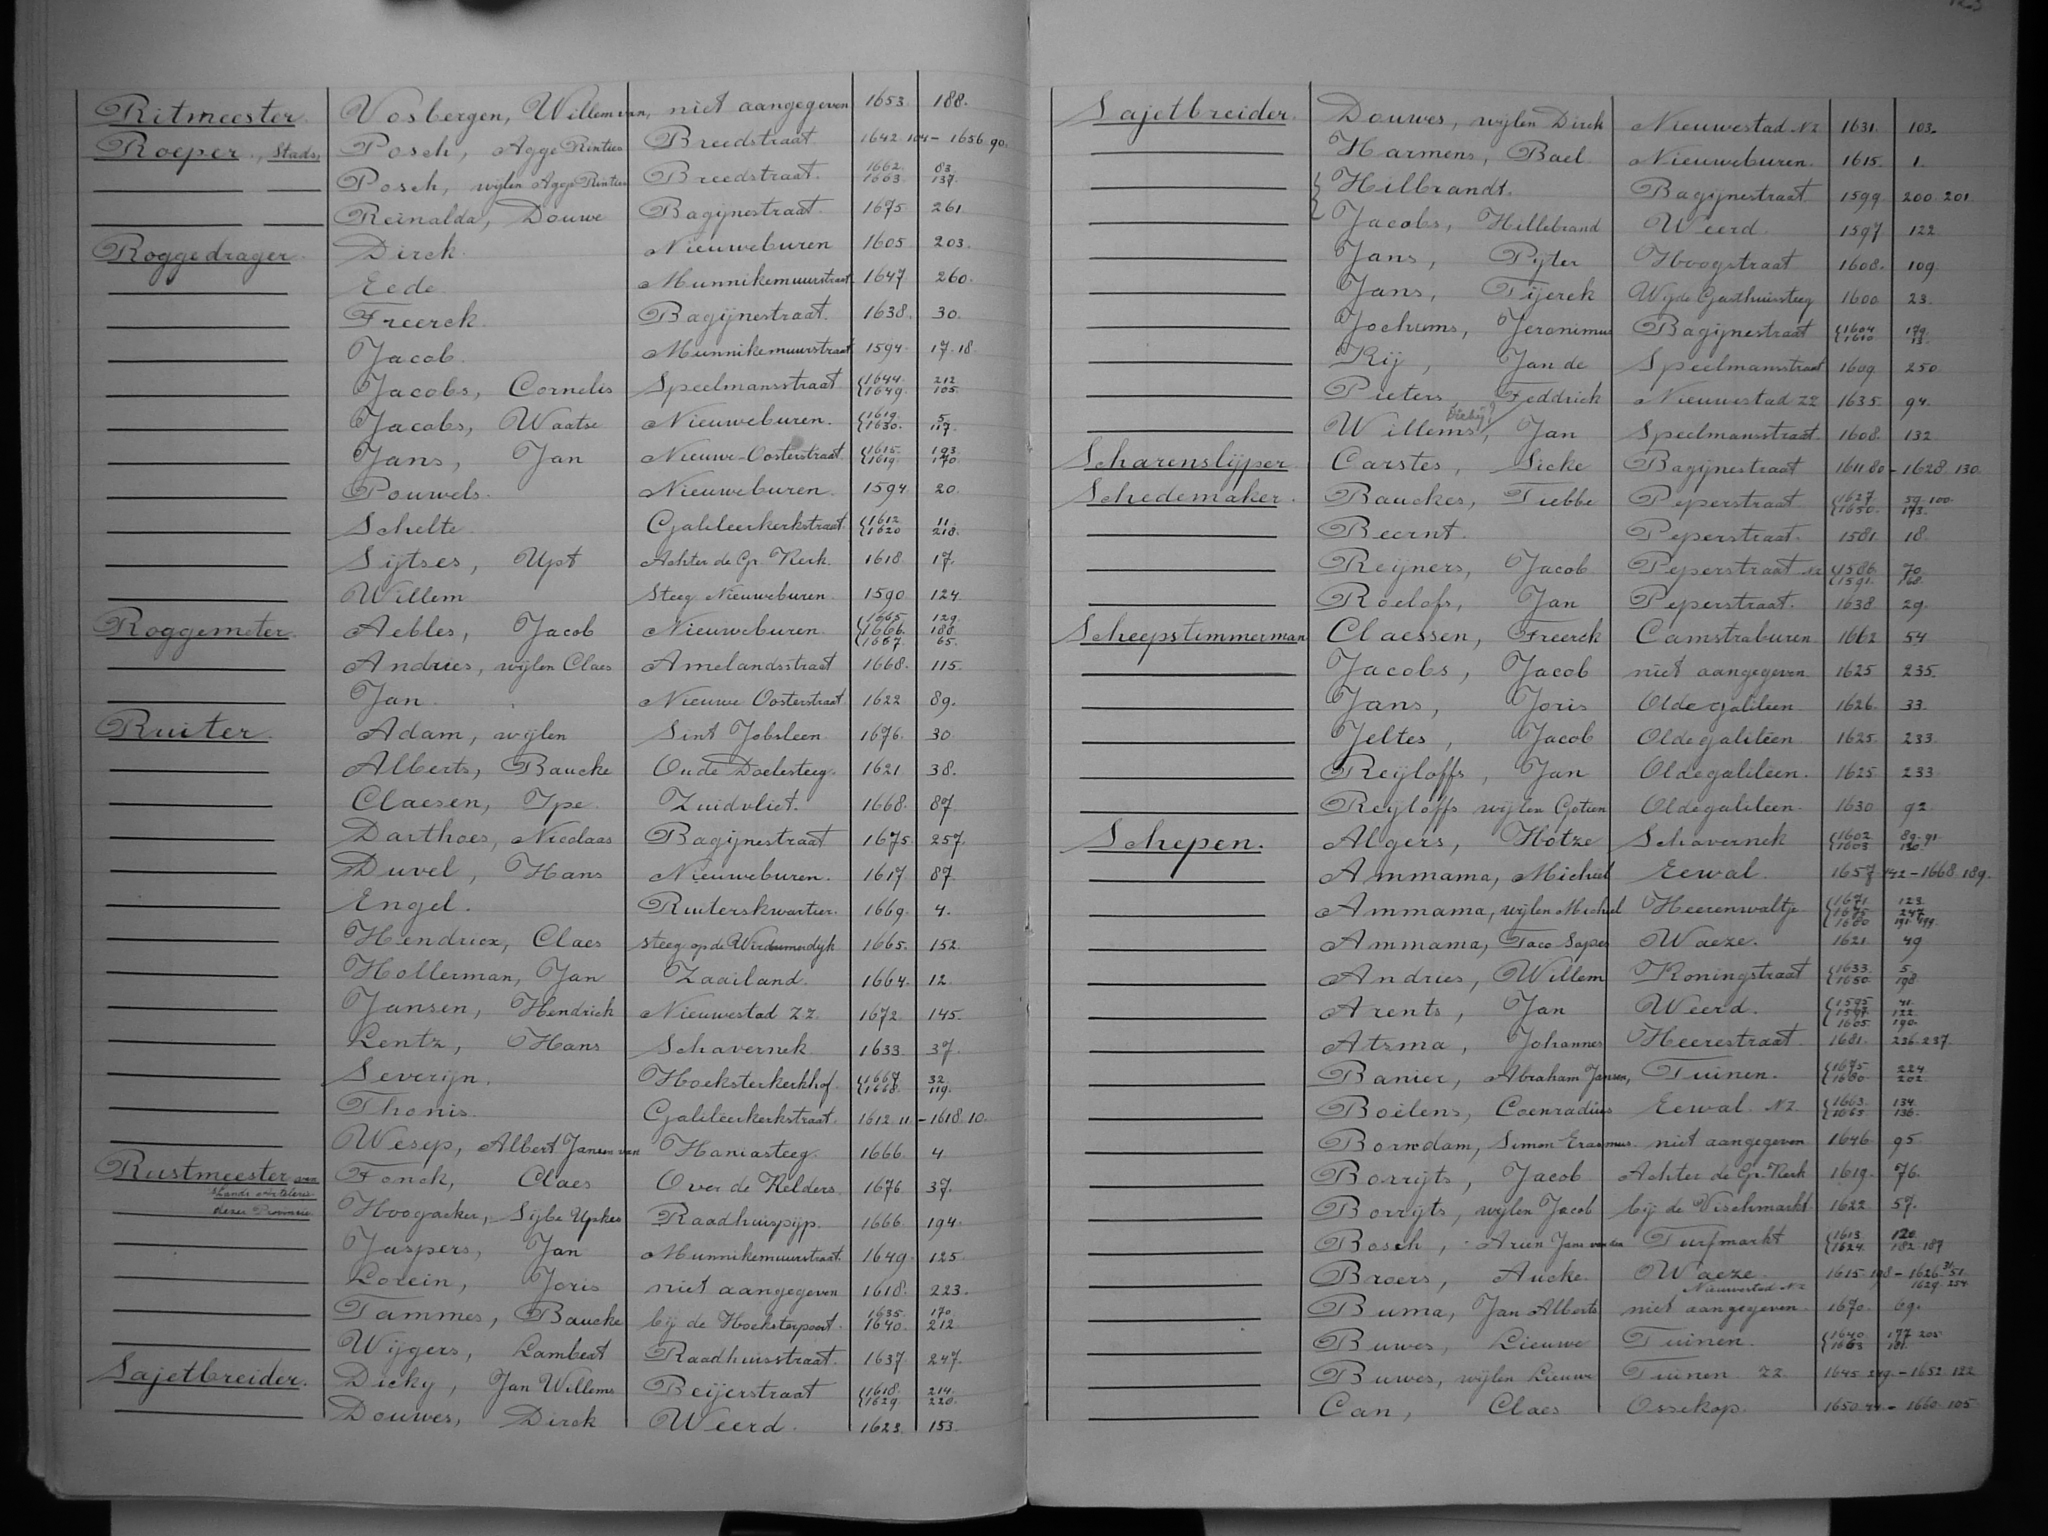 Ritmeester. Vosbergen, Willem van, niet aangegeven 1653. 188.
Roeper, Stads, Posch, Agge Rinties Breedstraat 1642. 104 - 1656. 90.
Posch, wijlen Agge Rinties Breedstraat. 1662. 83. 1663. 137.
Reinalda, Douwe Bagijnestraat. 1675. 261
Roggedrager. Dirck. Nieuweburen 1605. 203.
Eede. Munnikemuurstraat 1647 260.
Freerck. Bagijnestraat. 1638. 30.
Jacob. Munnikemuurstraat 1594. 17. 18.
Jacobs, Cornelis Speelmansstraat. 1644. 212. 1649. 105.
Jacobs, Waatse Nieuweburen. 1619. 5. 1630. 117.
Jans, Jan Nieuwe-Oosterstraat. 1615. 193. 1619. 170.
Pouwels. Nieuweburen. 1594 20.
Schelte. Galileerkerkstraat. 1612. 11. 1620 218.
Sijtses, Upt Achter de Gr. Kerk. 1618. 17.
Willem Steeg Nieuweburen. 1590 124.
Roggemeter. Aebles, Jacob Nieuweburen. 1665. 129. 1666. 188. 1667. 65.
Andries, wijlen Claes Amelandsstraat 1668. 115.
Jan. Nieuwe Oosterstraat. 1622 89.
Ruiter. Adam, wijlen Sint Jobsleen. 1676. 30.
Alberts, Baucke Oude Doelesteeg. 1621 38.
Claesen, Ype. Zuidvliet. 1668. 87.
Darthoes, Nicolaas Bagijnestraat 1675. 257.
Duvel, Hans Nieuweburen. 1617 87.
Engel. Ruiterskwartier. 1669. 4.
Hendricx, Claes steeg op de Wirdumerdijk 1665. 152.
Hollerman, Jan Zaailand. 1664. 12.
Jansen, Hendrick Nieuwestad ZZ. 1672. 145.
Lentz, Hans Schavernek. 1633. 37.
Severijn. Hoeksterkerkhof. 1667 32. 1668. 119.
Thonis. Galileerkerkstraat. 1612. 11. - 1618. 10.
Wesep, Albert Jansen van Haniasteeg. 1666. 4.
Rustmeester van Fonck, Claes Over de Kelders. 1676 37.
's Lands Artelerie dezer Provincie Hoogacker, Sijbe Upkes Raadhuispijp. 1666. 194.
Jaspers, Jan Munnikemuurstraat. 1649. 125.
Lorein, Joris niet aangegeven 1618. 223.
Tammes, Baucke bij de Hoeksterpoort. 1635. 170. 1640. 212.
Wijgers, Lambert Raadhuisstraat. 1637. 247.
Sajetbreider. Dicky, Jan Willems Beijerstraat 1618. 214. 1629. 220.
Douwes, Dirck Weerd. 1623. 153.
Sajetbreider. Douwes, wijlen Dirck Nieuwestad NZ 1631. 103.
Harmens, Bael Nieuweburen. 1615. 1.
Hilbrandt. Bagijnestraat. 1599 200. 201.
Jacobs, Hillebrand Weerd. 1597 122.
Jans, Pijter Hoogstraat 1608. 109.
Jans, Tijerck Wijde Gasthuissteeg 1600 23.
Jochums, Jeronimus Bagijnestraat 1604 179. 1610
Rij, Jan de Speelmansstraat 1609 250
Pieters Feddrick Nieuwestad ZZ 1635. 94.
Willems, Dicky? Jan Speelmansstraat 1608. 132
Scharenslijper Carstes, Sicke Bagijnestraat 1611 80 - 1628. 130.
Schedemaker. Bauckes, Tiebbe Peperstraat 1627. 59. 100. 1650. 173.
Beernt. Peperstraat. 1581. 18.
Reijners, Jacob Peperstraat NZ 1586. 70. 1591. 168.
Roelofs, Jan Peperstraat. 1638. 29.
Scheepstimmerman Claessen, Freerck Camstraburen 1662 54.
Jacobs, Jacob niet aangegeven. 1625 235.
Jans, Joris Oldegaliléen 1626. 33.
Jeltes, Jacob Oldegaliléen 1625. 233.
Reijloffs, Jan Oldegaliléen. 1625 233
Reijloffs wijlen Gotien Oldegaliléen. 1630 92
Schepen. Algers, Hotze Schavernek 1602. 89. 91. 1603 130.
Ammama, Michiel Eewal. 1657. 142 - 1668. 189.
Ammama, wijlen Michiel Heerenwaltje 1671. 123. 1675. 247. 1680 191.
Ammama, Taco Sapes Waeze. 1621. 49
Andries, Willem Koningstraat 1633. 5. 1650. 198
Arents, Jan Weerd. 1595 41. 1597. 122. 1605. 190.
Atsma, Johannes Heerestraat. 1681. 236. 237.
Banier, Abraham Jansen, Tuinen. 1675. 224. 1680. 202.
Boëlens, Coenradius Eewal. NZ. 1663. 134. 1665 136.
Bornedam, Simon Erasmus. niet aangegeven 1646. 95.
Borrijts, Jacob Achter de Gr. Kerk 1619. 76.
Borrijts, wijlen Jacob bij de Vischmarkt. 1622. 57.
Bosch, Arien Jans van den Turfmarkt 1613. 120. 1624. 182. 187
Broers, Aucke. Waeze. 1615. 198 - 1626. 51.
Nieuwestad NZ 1629. 254.
Buma, Jan Alberts niet aangegeven. 1670. 69.
Buwes, Lieuwe Tuinen. 1640. 177. 205. 1663 181.
Buwes, wijlen Lieuwe Tuinen ZZ. 1645. 249. - 1652. 122
Can, Claes Ossekop. 1650. - 1660. 105.